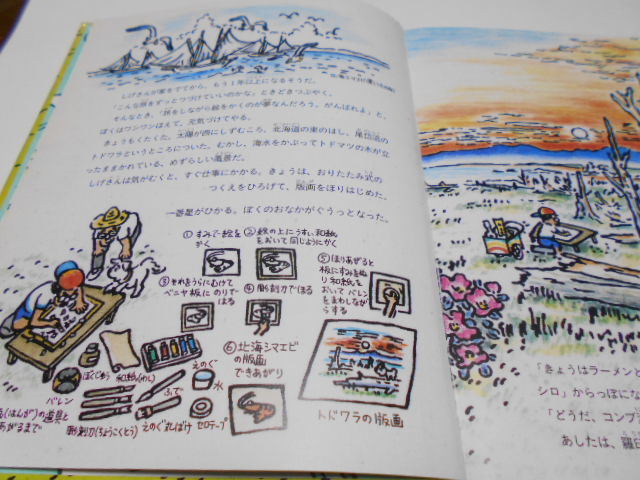 しげさんが家をでてから、もう1年以上になるそうだ。
「こんな旅をずっとつづけていいのかな」ときどきつぶやく。
そんなとき、「旅をしながら絵をかくのが夢なんだろう、がんばれよ」と、
ぼくはワンワンほえて、元気づけてやる。
きょうもくたくた。太陽が西にしずむころ、北海道の東のはし、尾岱沼の
トドワラというところについた。むかし、海水をかぶってトドマツの木が立
ったままかれている、めずらしい風景だ。
しげさんは気がむくと、すぐ仕事にかかる。きょうは、おりたたみ式の
つくえをひろげて、版画をほりはじめた。
一番星がひかる。ぼくのおなかがぐうっとなった。
①すみで絵を
かく
②絵の上にうすい和紙
をおいて同じようにかく
③それをうらにむけて
ベニヤ板にのりで
はる
④彫刻刀でほる
⑤ほりあがると
板にすみをぬ
り和紙を
おいてバレン
をまわしながら
する
⑥北海シマエビ
の版画
できあがり
トドワラの版画
バレン
ぼくじゅう
和紙(わし)
えのぐ
ふで
水
(はんが)の道具と
あがるまで
彫刻刀(ちょうこくとう)
えのぐればけ
セロテープ
「きょうはラーメンと
シロ」からっぽにな
「どうだ、コンブ
あしたは、羅臼